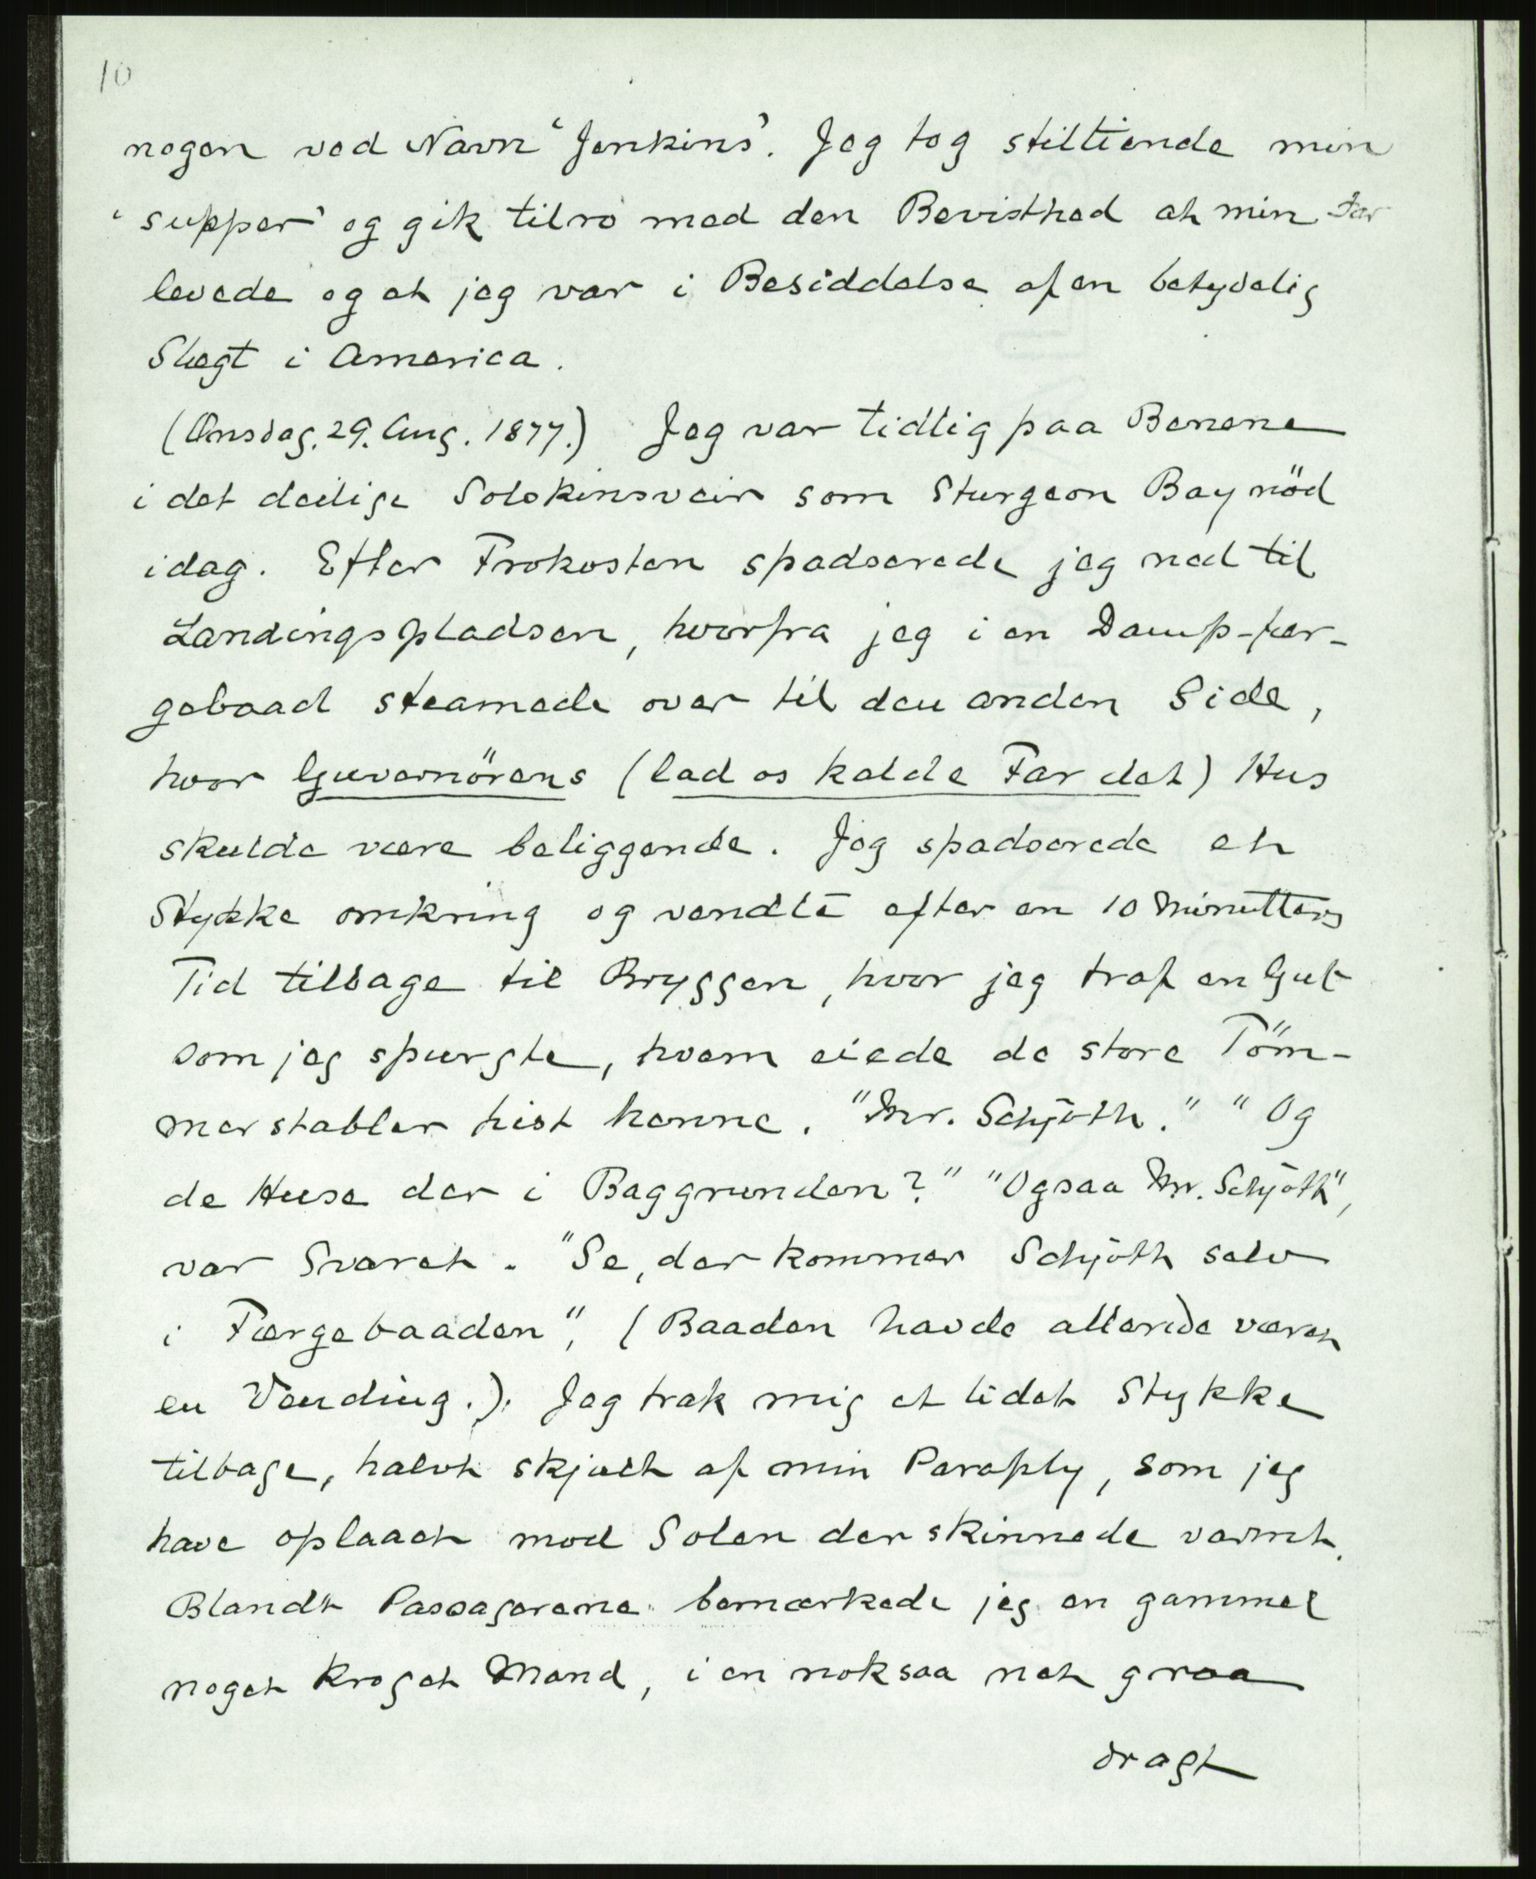 10
nogen ved Navn 'Jenkins'. Jeg tog stiltiende min
'supper' og gik tilro med den Bevisthed at min Far
levede og at jeg var i Besiddelse af en betydelig
Slægt i America.
(Onsdag. 29. Aug. 1877.) Jeg var tidlig paa Benene
i det deilige Solskinsveir som Sturgeon Bay nöd
idag. Efter Frokosten spadserede jeg ned til
Landingspladsen, hvorfra jeg i en Damp-fær-
gebaad steamede over til den anden Side,
hvor Guvernörens (lad os kalde Far det) Hus
skulde være beliggende. Jeg spadserede et
Stykke omkring og vendte efter en 10 Minutters
Tid tilbage til Bryggen, hvor jeg traf en Gut
som jeg spurgte, hvem eiede de store Töm-
merstabler hist henne. "Mr. Schjöth." "Og
de Huse der i Baggrunden?" "Ogsaa Mr. Schjöth",
var Svaret. "Se, der kommer Schjöth selv
i Færgebaaden", (Baaden havde allerede været
en Vending.). Jeg trak mig et lidet Stykke
tilbage, halvt skjult af min Paraply, som jeg
have oplaaet mod Solen der skinnede varmt.
Blandt Passagerene bemærkede jeg en gammel
noget kroget Mand, i en noksaa net graa
dragt